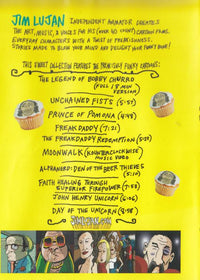 JIM LUJAN INDEPENDENT ANIMATOR CREATES
THE ART, MUSIC, & VOICES FOR HIS (OVER 60 COUNT) CARTOON FILMS.
EVERYDAY CHARACTERS WITH A TWIST OF FREAKINESS.
STORIES MADE TO BLOW YOUR MIND AND DELIGHT YOUR FUNNY BONE!
THIS SWEET COLLECTION FEATURES THE FREAKISHLY FUNKY CARTOONS:
THE LEGEND OF BOBBY CHURRO
(FULL 18 MIN
VERSION)
UNCHAINED FISTS (5:57)
PRINCE OF POMONA (4:48)
FREAKDADDY (7:21)
THE FREAKDADDY REDEMPTION (5:25)
MOONWALK (KOUNTERCLOCKWISE
MUSIC VIDEO)
ALPHANERD: DEN OF THE BEER THIEVES
(5:10)
FAITH HEALING THROUGH
SUPERIOR FIREPOWER (7:58)
JOHN HENRY UNICORN (6:06)
DAY OF THE UNICORN (4:58)